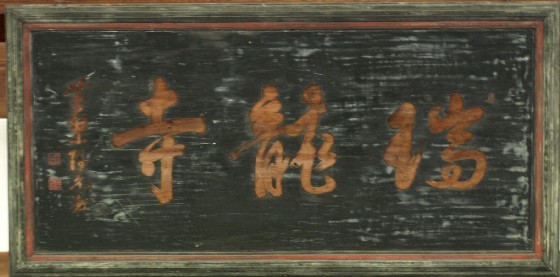 瑞龍寺